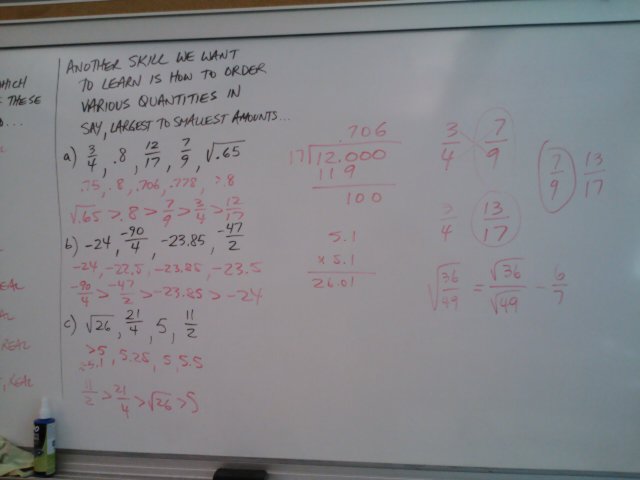 HICH
THESE
...
EAL
AL
REAL
REAL
ANOTHER SKILL WE WANT
TO LEARN IS HOW TO ORDER
VARIOUS QUANTITIES IN
SAY, LARGEST TO SMALLEST AMOUNTS...
a) 3/4, .8, 12/17, 7/9, √.65
.75, .8, .706, .778, >.8
√.65 > .8 > 7/9 > 3/4 > 12/17
b) -24, -90/4, -23.85, -47/2
-24, -22.5, -23.85, -23.5
-90/4 > -47/2 > -23.85 > -24
c) √26, 21/4, 5, 11/2
>5
≈5.1, 5.25, 5, 5.5
11/2 > 21/4 > √26 > 5
.706
17 12.000
11 9
100
5.1
x 5.1
26.01
3/4 7/9
3/4 13/17
√36/49 = √36/√49 - 6/7
7/9 13/17